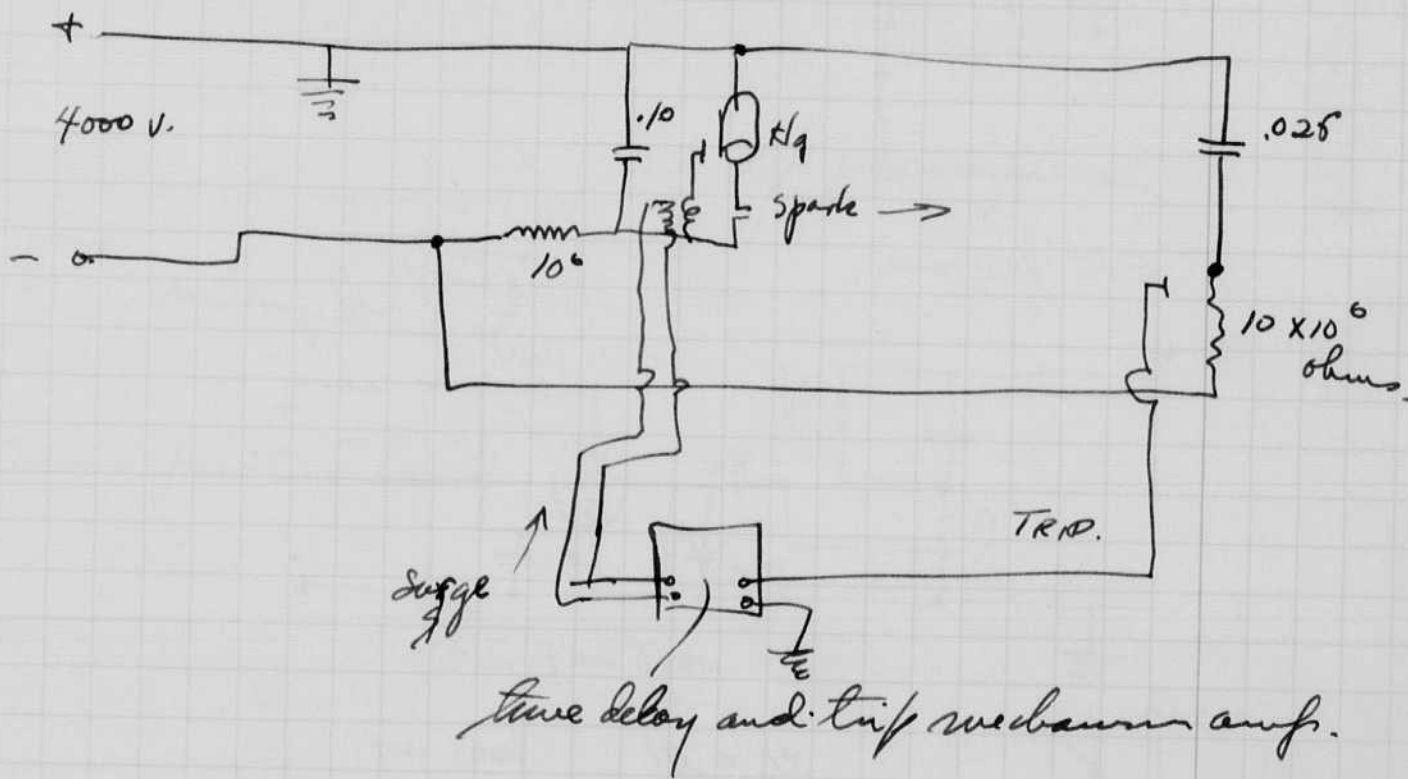 +
4000 v.
-
.10
Hg
spark →
10⁶
.025
10 x 10⁶
ohms.
TRIP.
Surge
time delay and trip mechanism amp.